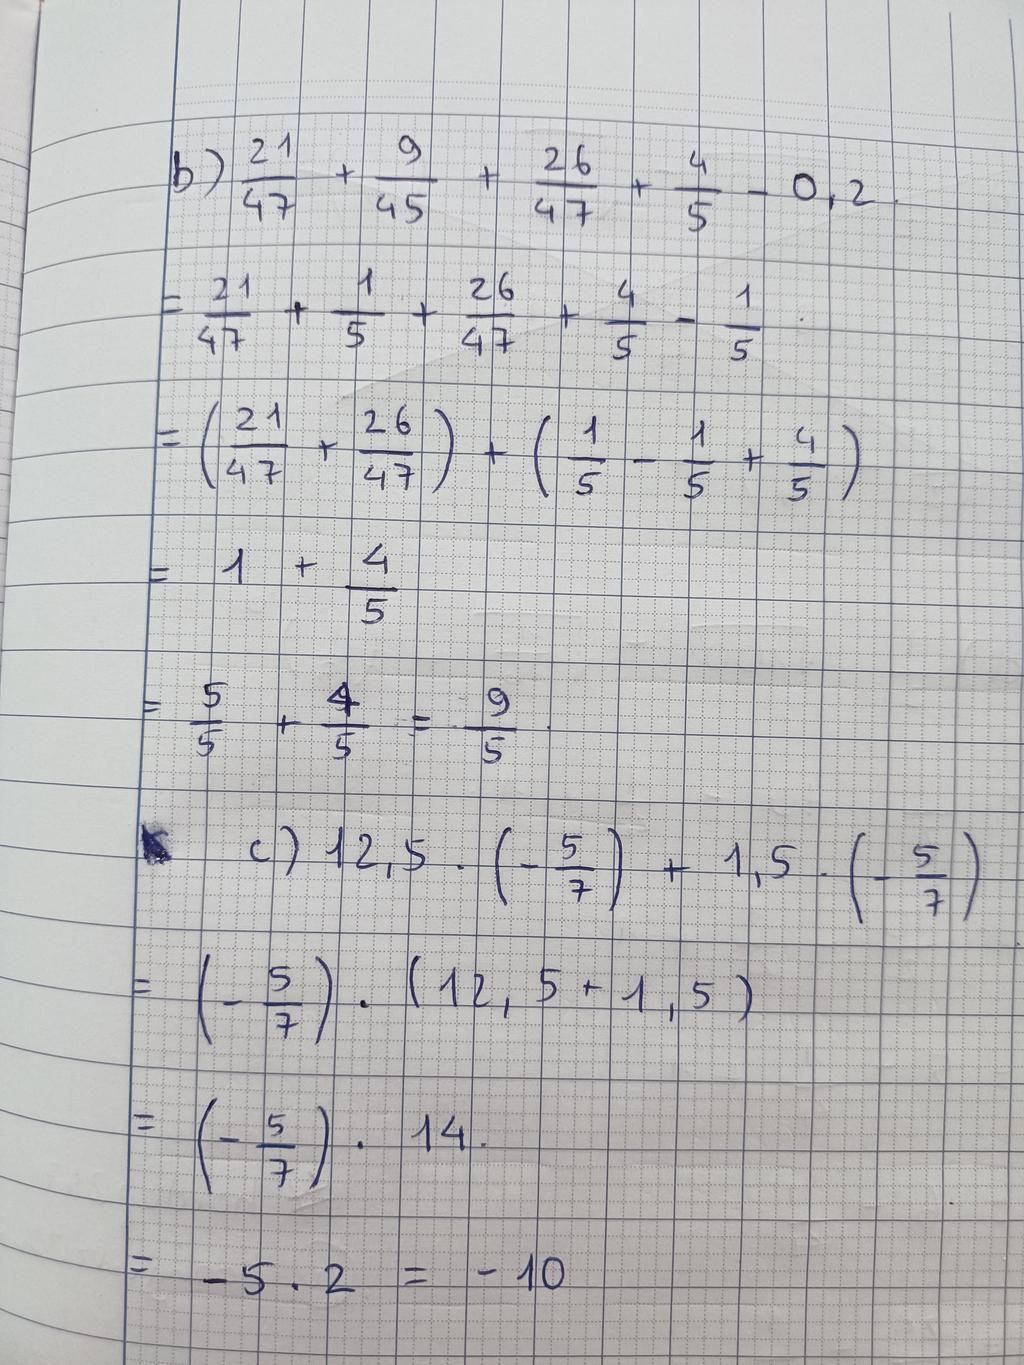 b) 21/47 + 9/45 + 26/47 + 4/5 - 0,2
= 21/47 + 1/5 + 26/47 + 4/5 - 1/5
= (21/47 + 26/47) + (1/5 - 1/5 + 4/5)
= 1 + 4/5
= 5/5 + 4/5 = 9/5
c) 12,5 . (-5/7) + 1,5 . (-5/7)
= (-5/7) . (12,5 + 1,5)
= (-5/7) . 14
= -5 . 2 = -10